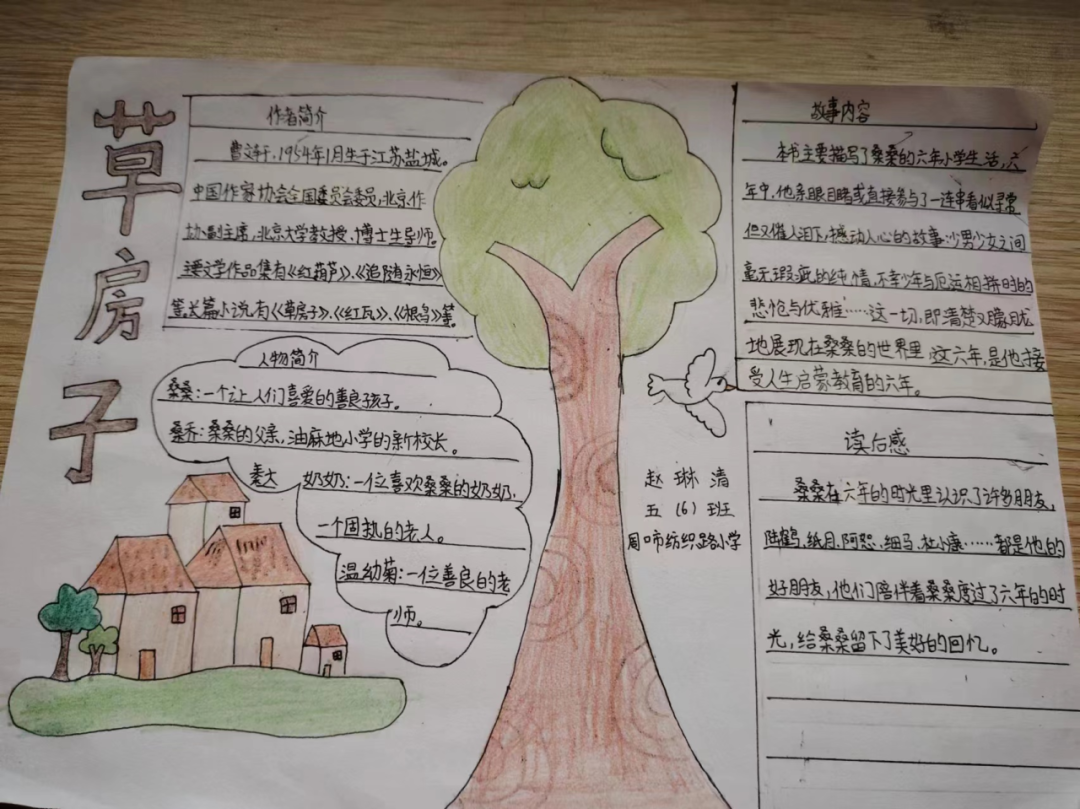 草房子
作者简介
曹文轩,1954年1月生于江苏盐城。
中国作家协会全国委员会委员,北京作
协副主席,北京大学教授、博士生导师。
主要文学作品集有《红葫芦》、《追随永恒》
等长篇小说有《草房子》、《红瓦》、《根鸟》等。
人物简介
桑桑:一个让人们喜爱的善良孩子。
桑乔:桑桑的父亲,油麻地小学的新校长。
秦大奶奶:一位喜欢桑桑的奶奶,
一个固执的老人。
温幼菊:一位善良的老
师。
赵琳清
五(6)班
周口市纺织路小学
故事内容
本书主要描写了桑桑的六年小学生活,六
年中,他亲眼目睹或直接参与了一连串看似寻常
但又催人泪下,撼动人心的故事:少男少女之间
毫无瑕疵的纯情,不幸少年与厄运相拼时的
悲怆与优雅……这一切,即清楚又朦胧
地展现在桑桑的世界里,这六年,是他接
受人生启蒙教育的六年。
读后感
桑桑在六年的时光里认识了许多朋友,
陆鹤、纸月、阿恕、细马、杜小康……都是他的
好朋友,他们陪伴着桑桑度过了六年的时
光,给桑桑留下了美好的回忆。